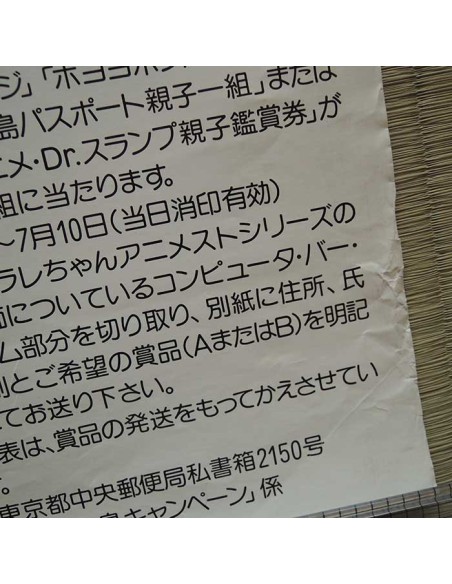 ジ」「ホヨヨホ
島パスポート親子一組」または
ニメ・Dr.スランプ親子鑑賞券」が
組に当たります。
〜7月10日(当日消印有効)
ラレちゃんアニメストシリーズの
面についているコンピュータ・バー・
ム部分を切り取り、別紙に住所、氏
別とご希望の賞品(AまたはB)を明記
てお送り下さい。
表は、賞品の発送をもってかえさせてい
。
東京都中央郵便局私書箱2150号
島キャンペーン」係